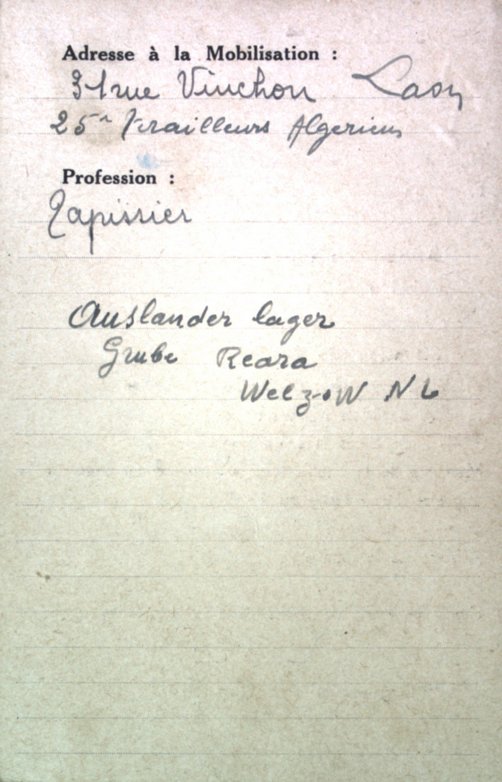 Adresse à la Mobilisation :
31 rue Vinchon Laon
25e Tirailleurs Algeriens
Profession :
Tapissier
Auslander lager
Grube Reara
Welzow N L